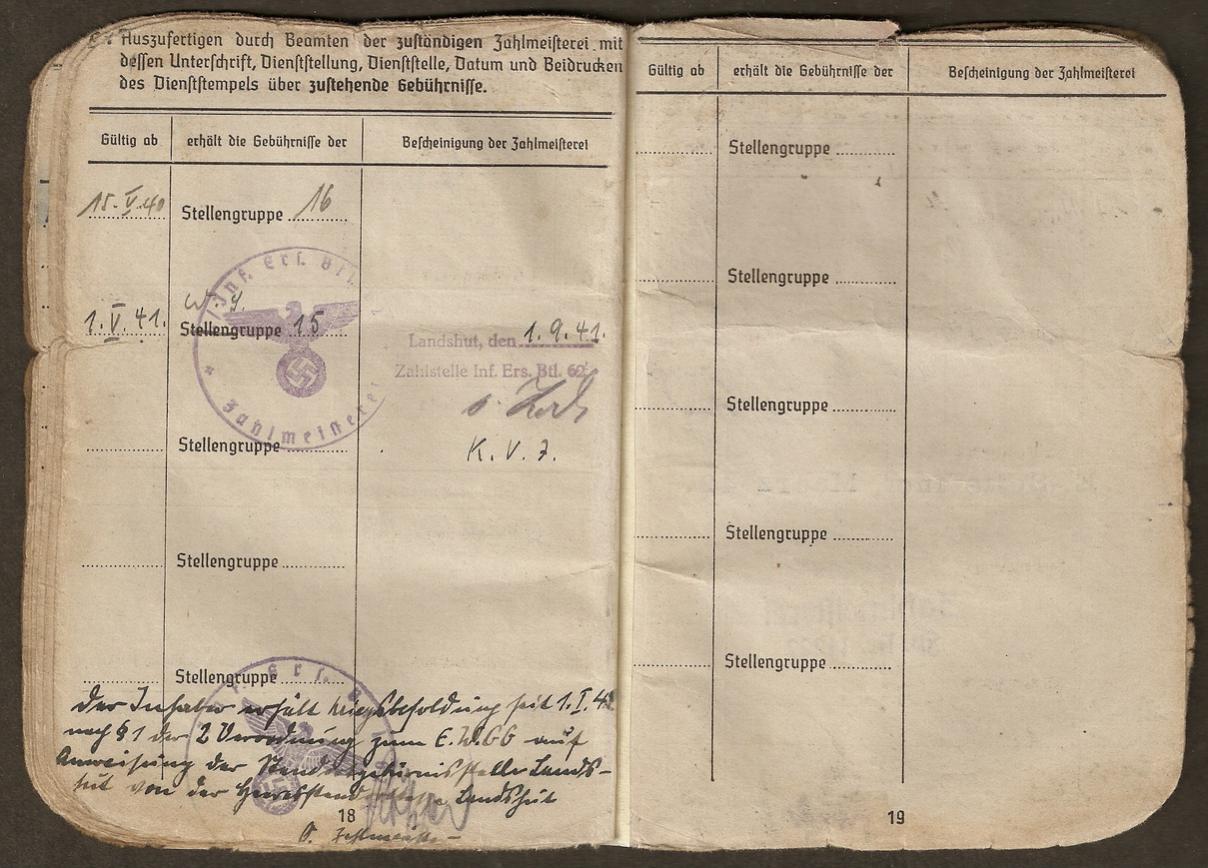 Auszufertigen durch Beamten der zuständigen Zahlmeisterei mit
dessen Unterschrift, Dienststellung, Dienststelle, Datum und Beidrucken
des Dienststempels über zustehende Gebührnisse.
Gültig ab erhält die Gebührnisse der Bescheinigung der Zahlmeisterei
15. V. 40 Stellengruppe 16
Inf. Ers. Btl.
W. G.
1. V. 41. Stellengruppe 15
Landshut, den 1. 9. 41.
Zahlstelle Inf. Ers. Btl. 62
Zahlmeisterei
K. V. Z.
Stellengruppe
Stellengruppe
Stellengruppe
Ers. B
Der Inhaber erhält Kriegsbesoldung seit 1. I. 4
nach § 1 der 2 Verordnung zum E.W.GG auf
Anweisung der Standortgebührnisstelle Lands-
hut von der Landshut
18
Gültig ab erhält die Gebührnisse der Bescheinigung der Zahlmeisterei
Stellengruppe
Stellengruppe
Stellengruppe
Stellengruppe
Stellengruppe
19